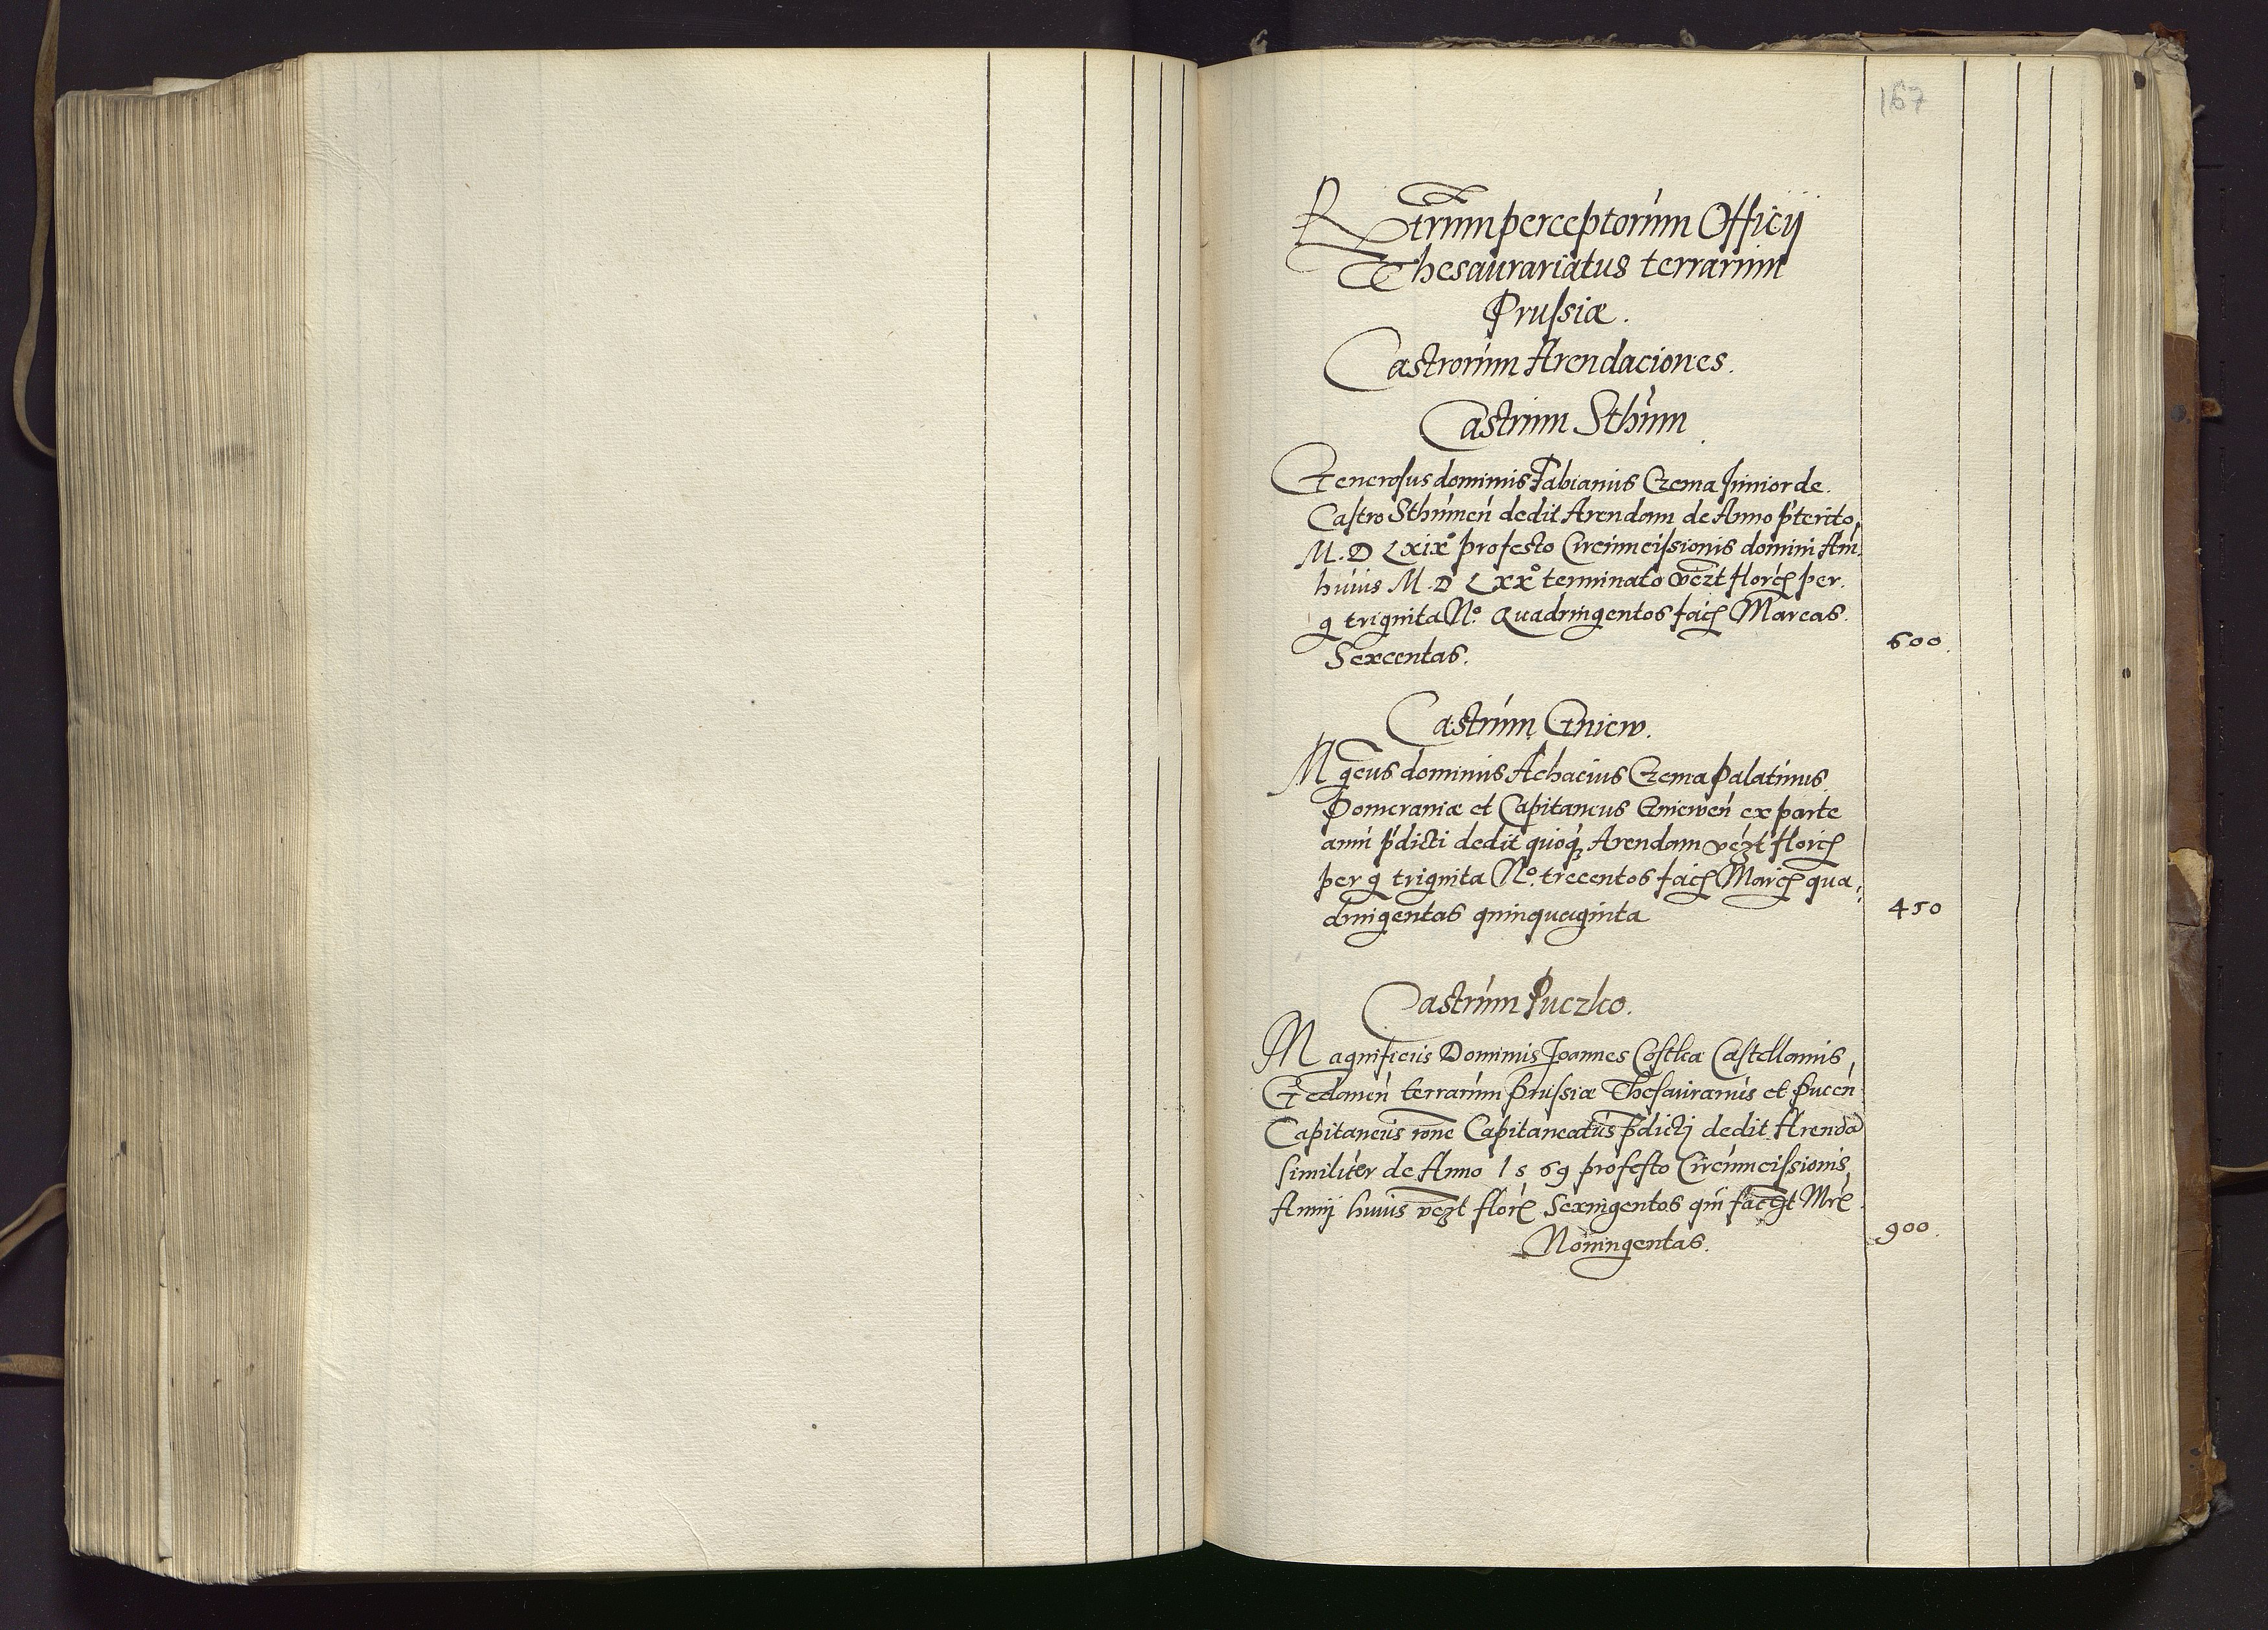 167
Regestrum perceptorum Officij
Thesaurariatus terrarum
Prussiæ.
Castrorum Arendaciones.
Castrum Sthum
Generosus dominus Fabianus Czema Junior de
Castro Sthumen̄ dedit Arendam de Anno p̄terito
M.D Lxix° pro festo Circumcissionis domini An̄i
huius M.D Lxx° terminato vezt floren̄ per
g triginta N° Quadringentos facien̄ Marcas
Sexcentas. 600.
Castrum Gniew.
Mgcus dominus Achacius Czema Palatinus
Pomeraniæ et Capitaneus Gniewen̄ ex parte
anni p̄dicti dedit quoq₃ Arendam vezt floren̄
per g triginta N° trecentos facien̄ Marcas qua
dringentas quinquaginta 450
Castrum Puczko.
Magnificus Dominus Joannes Costka Castellanus
Gedanen̄ terrarum Prussiæ Thesaurarius et Pucen̄
Capitaneus rōne Capitaneatus p̄dicti dedit Arendā
similiter de Anno 1569 pro festo Circumcissionis
Annij huius vezt florē Sexingentos qui faciūt Mrc̄
Noningentas. 900.